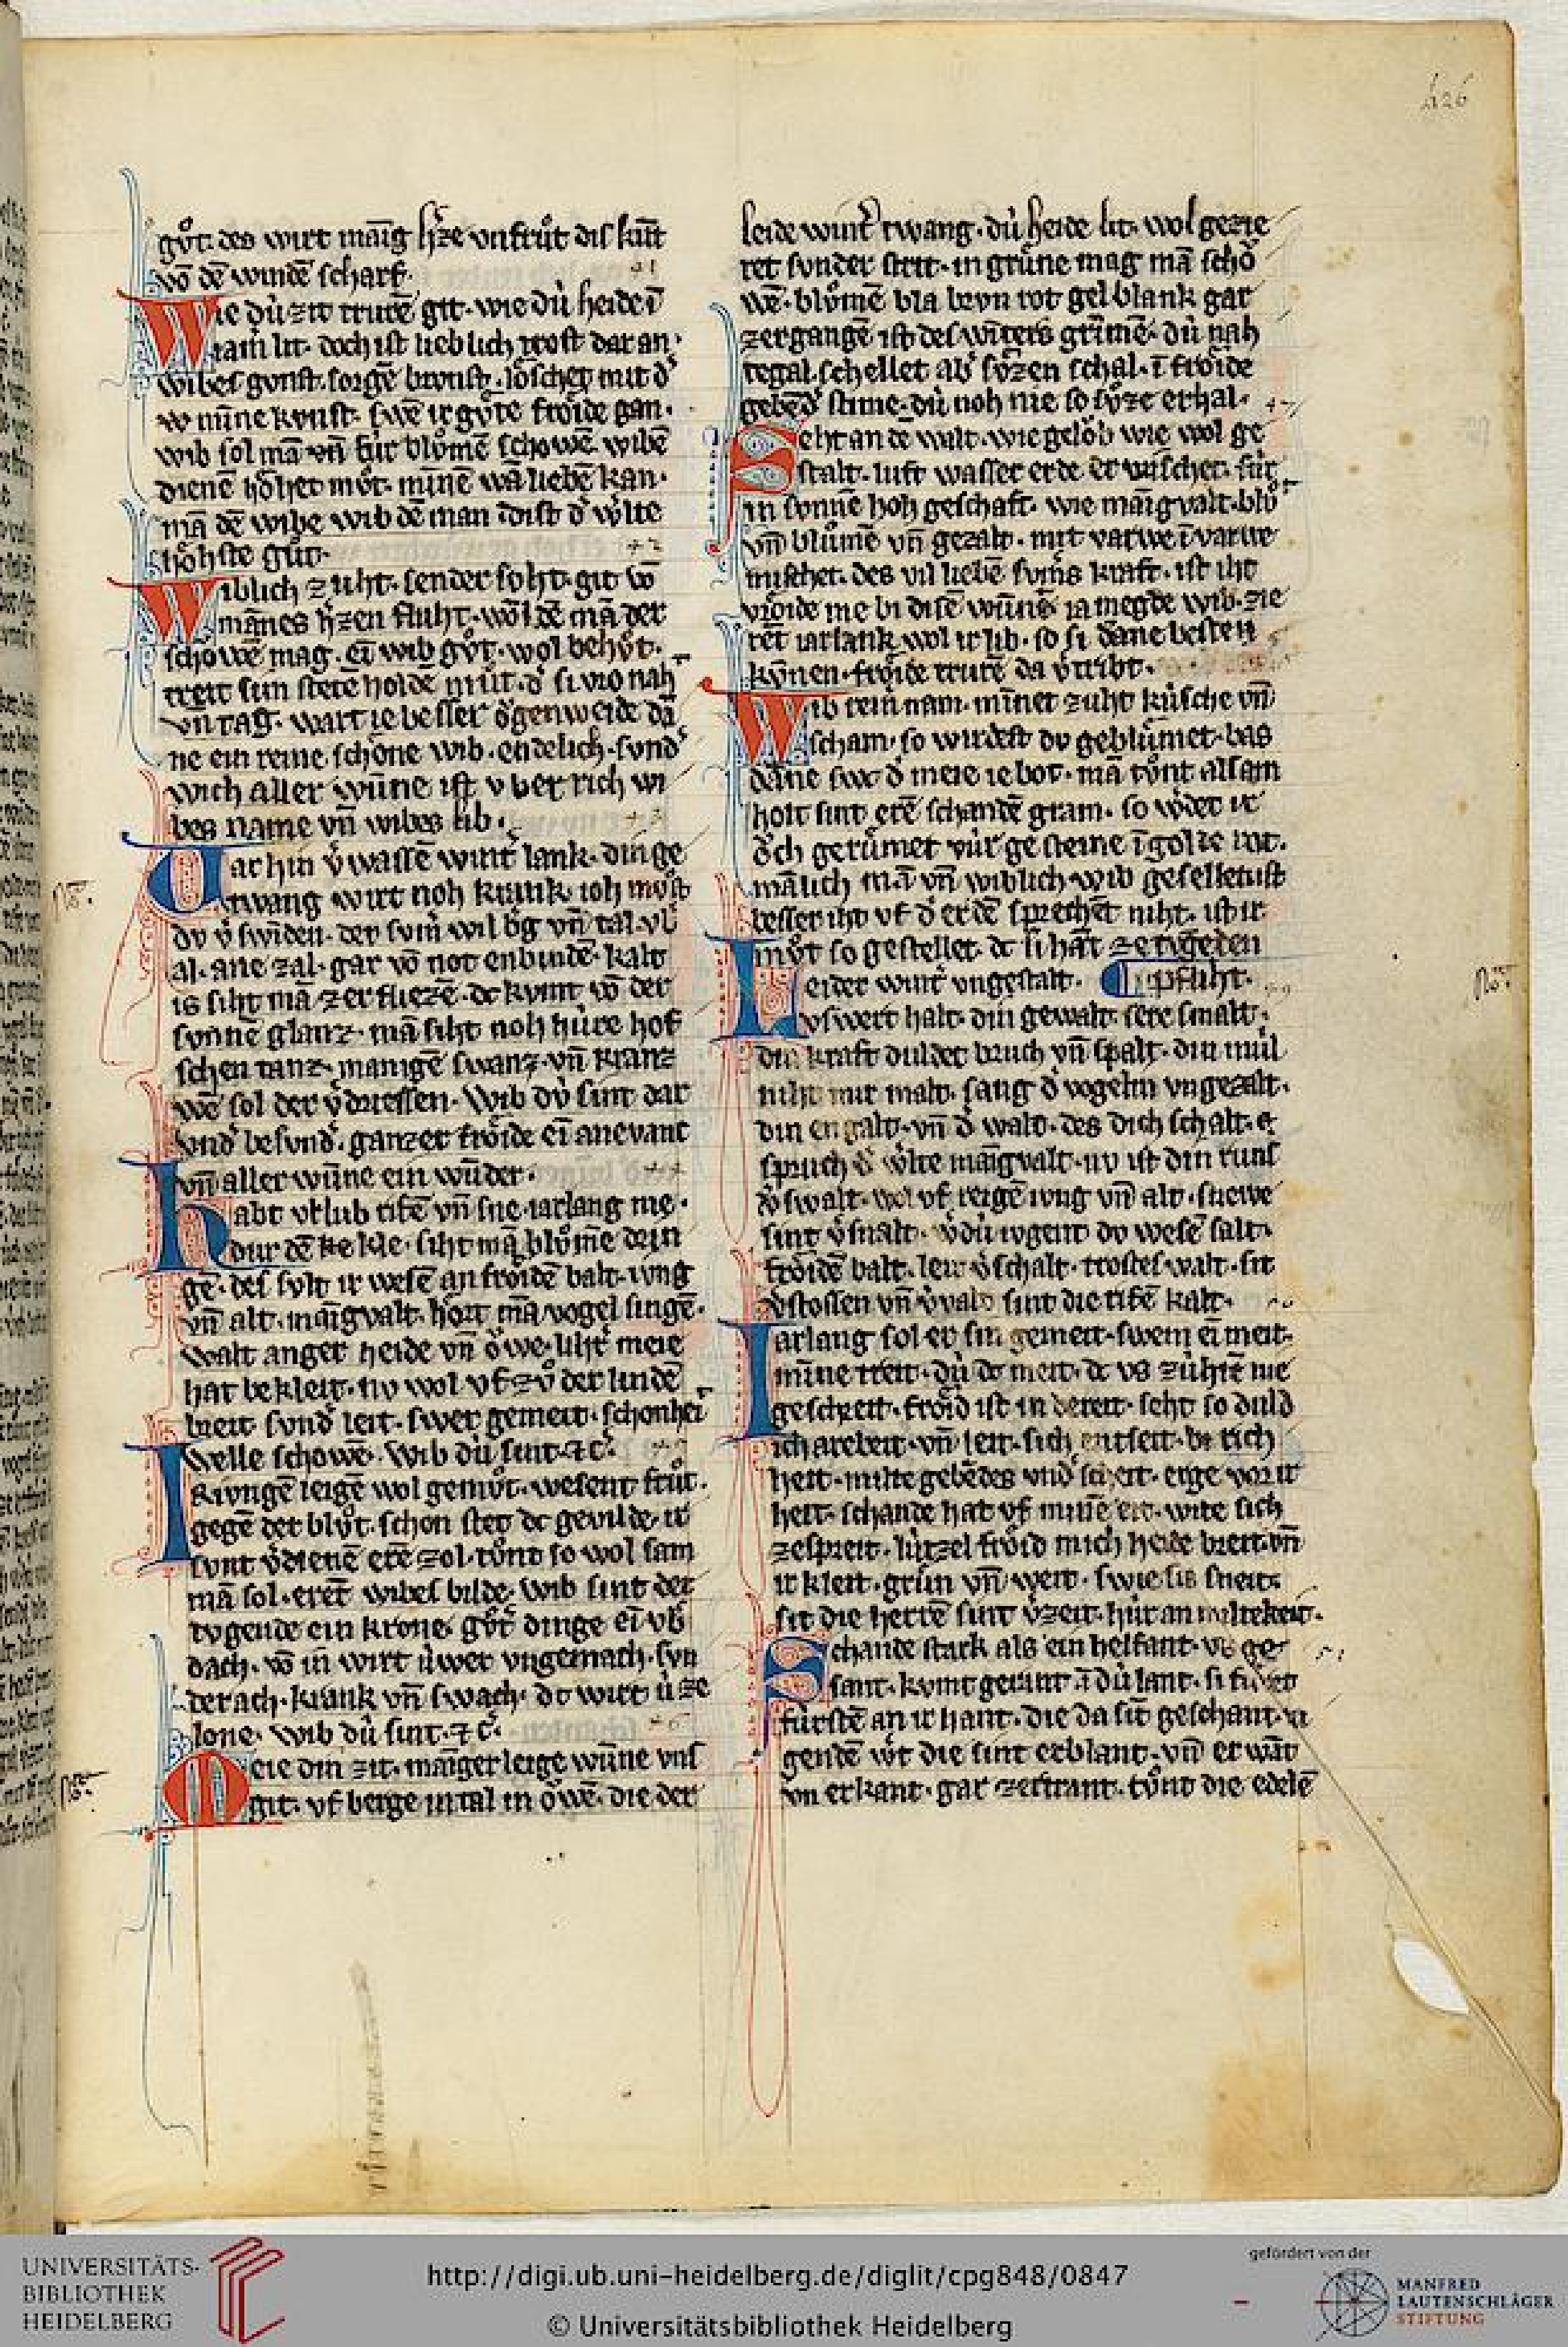 426
gůt. des wirt maīg h'ze vnfrůt dis kūt
vō dē windē scharf.
Wie dú zit trurē git. wie dú heide ī
iamˀ lit. doch ist lieblich trost dar an.
wibes gvnst. sorgē brvnst. lőschet mit dˀ
w minne kvnst. swē ir gůte frőide gan.
wib sol mā vn̄ für blůmē schowē. wibē
dienē hőhet můt. minnē wā liebē kan.
mā dē wibe wib dē man dˢ ist dˀ wˀlte
hőhste gůt.
Wiblich zuht. sender soht. git vō
mannes hˀzen fluht. wol dē mā der
schowē mag. eī wib gůt. wol behůt.
treit sun stetē holdē můt. dˀ si vro nah
vn̄ tag. wart ie besser ögenweide dā
ne ein reine schöne wib. endelich. svndˀ
wich aller wūne ist vber rich wi
bes name vn̄ wibes lib.
Var hin vˀwassē wintˀ lank. din ge
twang wirt noh krank. ioh můst
dv vˀ swīden. der svmˀ wil bˀg vn̄ tal. vbˀ
al. ane zal. gar vō not enbindē. kalt
is siht mā zerfliezē. dc kvmt vō der
svnnē glanz. mā siht noh hüre hof
schen tanz. manigē swanz. vn̄ kranz
wē sol der vˀdriessen. Wib dv́ sint dar
vndˀ besvndˀ. ganzer frőide eī anevant
vn̄ aller wūne ein wūder.
Habt vrlub rifē vn̄ sne. iarlang me.
dur dē ke kle. siht mā blůmē drin
gē. des svlt ir wesē an frőidē balt. ivng
vn̄ alt. maīgvalt. hőrt mā vogel singē.
walt anger heide vn̄ őwe. lihtˀ meie
hat bekleit. nv wol vf zů der lindē
breit svndˀ leit. swer gemeit. schonheī
welle schowē. Wib dú sint. zc.
Ir ivngē leigē wol gemůt. wesent frůt.
gegē der blůt. schon stet dc gevilde. ir
svnt vˀdienē erē zol. tůnt so wol sam
mā sol. erēt wibes bilde. wib sint der
tvgende ein krone. gůtˀ dinge eī vbˀ
dach. vō in wirt úwer vngemach. svn
der ach. krank vn̄ swach. dc wirt ú ze
lone. wib dú sint. zc.
Meie din zit. māger leige wūne vns
git. vf berge in tal in őwē. die der
leide wintˀ twang. dú heide lit. wol gezie
ret svnder strit. in grůne mag mā schő
wē. blůmē bla brvn rot gel blank gar
zergangē ist des wīters grīmē. dú nah
tegal. schellet abˀ sůzen schal. ī frőide
gebēdˀ stime. dú noh nie so sůze erhal.
Seht an dē walt. wie gelőb wie wol ge
stalt. luft wasser erde. er vrischet. für
in svnnē hoh geschaft. wie maīgvalt. blůt
vn̄ blůmē vn̄ gezalt. mit varwe ī varwe
mischet. des vil liebē svmˀs kraft. ist iht
vrőide me bi disē wūnē. ia megde wib. zie
rēt iarlank wol ir lib. so si dane besten
kv́nen. frőide trurē da vˀtribt.
Wib rein nam. minet zuht kúsche vn̄
scham. so wirdest dv geblůmet. bas
dāne swc dˀ meie ie bot. mā tůnt alsam
holt sint erē schandē gram. so wˀdet ir
őch gerůmet vúr gesteine ī golde rot.
mālich mā vn̄ wiblich wib geselletist
besser iht vf dˀ erdē sprechēt niht. ist ir
můt so gestellet. dc si hāt ze tvgeden
Leider wintˀ vngestalt. pfliht.
vswert halt. din gewalt. sere smalt.
din kraft duldet bruch vn̄ spalt. din mül
niht mir malt. sang dˀ vogelin vngezalt.
din engalt. vn̄ dˀ walt. des dich schalt. er
spruch dˀ wˀlte maīgvalt. nv ist din runs
vˀswalt. wol vf reigē ivng vn̄ alt. snewe
sint vˀsnalt. vˀ dú ivgent dv wesē salt.
frőidē balt. leit vˀschalt. trostes walt. sit
vˀstossen vn̄ vˀvalt sint die rifē kalt.
Iarlang sol er sin gemeit. swem eī meit.
mīne treit. dú dc meit. dc vs zúhtē nie
geschreit. frőidˀ ist in bereit. seht so duld
ich arebeit. vn̄ leit. sich entseit. bi rich
heit. milte gebēdes vndˀ scheit. erge vor ir
heit. schande hat vf minē eit. wite sich
zespreit. lützel frőid mich heide breit. vn̄
ir kleit. grůn vn̄ weit. swie sis sneit.
sit die herrē sint vˀzeit. hür an miltekeit.
Schande stark als ein helfant. vs ge
sant. kvmt gerant ā dú lant. si fůret
fürstē an ir hant. die da sīt geschant. vˀ
gendē wˀt die sint erblant. vn̄ er wāt
vn erkant. gar zertrant. tůnt die edelē
UNIVERSITÄTS-
BIBLIOTHEK
HEIDELBERG
http://digi.ub.uni-heidelberg.de/diglit/cpg848/0847
© Universitätsbibliothek Heidelberg
gefördert von der
MANFRED
LAUTENSCHLÄGER
STIFTUNG